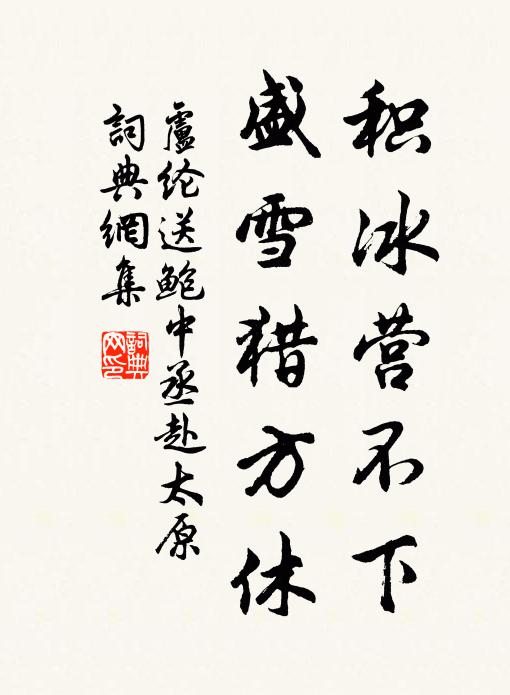 积冰营不下
盛雪猎方休
盧纶送鲍中丞赴太原
詞典網集
詞典網印